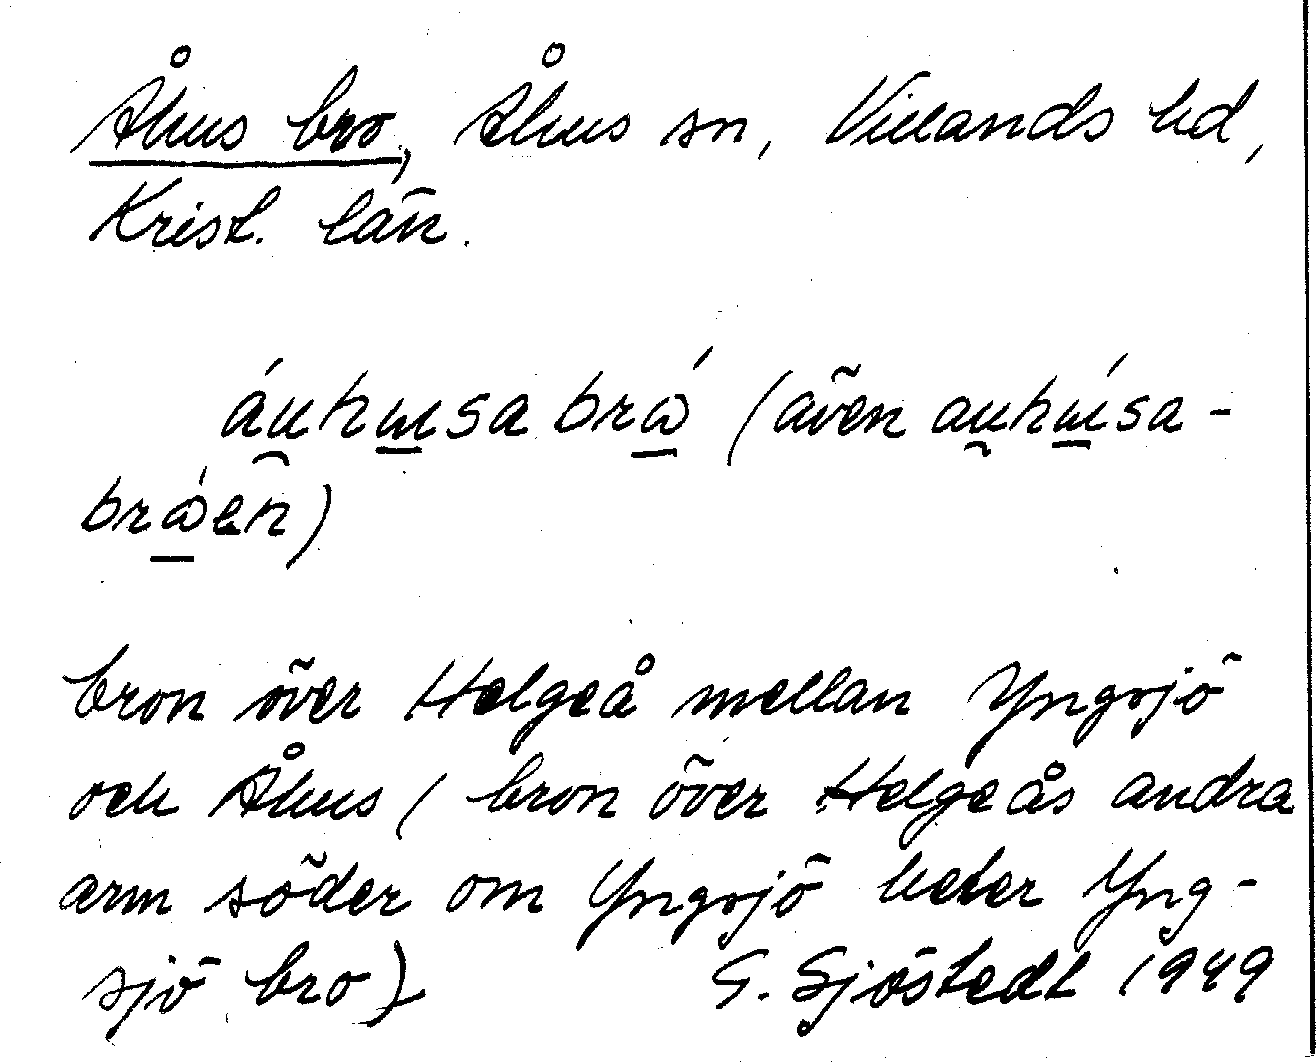 Åhus bro, Åhus sn, Villands hd,
Krist. län.
áu̯hɯ̱sa brώ̱ (även au̯hɯ̱́sa-
brώ̱en)
bron över Helgeå mellan Yngsjö
och Åhus (bron över Helgeås andra
arm söder om Yngsjö heter Yng-
sjö bro) G. Sjöstedt 1949